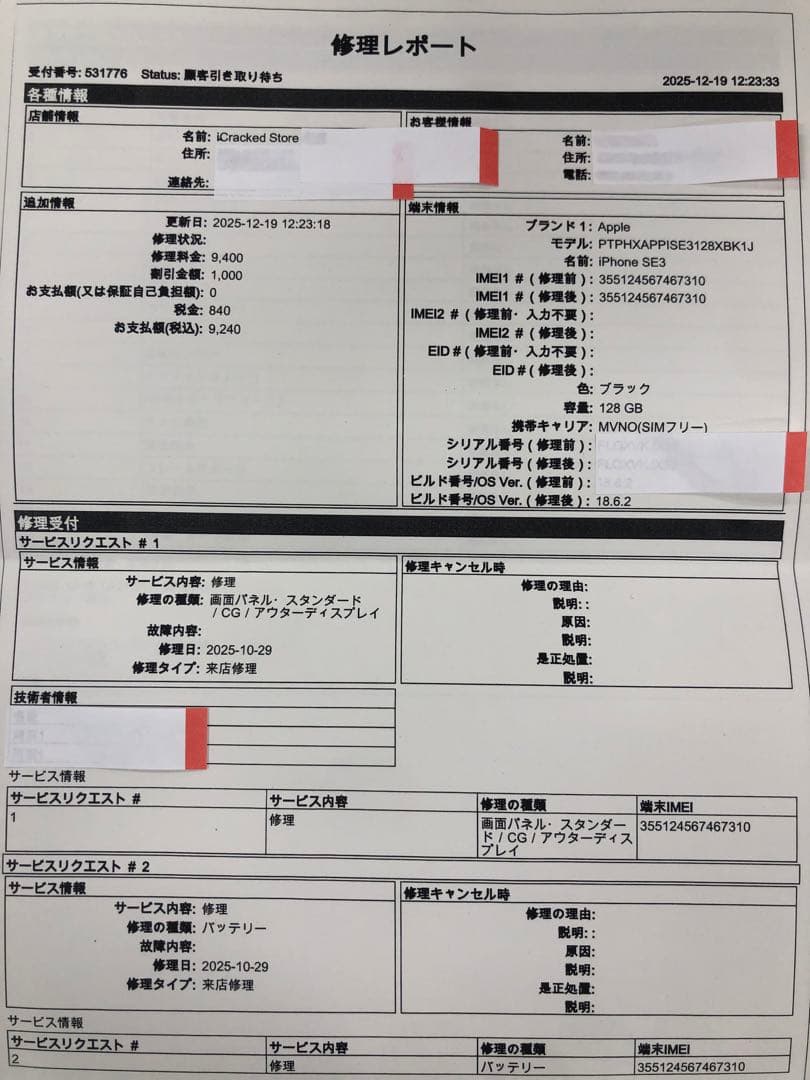 修理レポート
受付番号: 531776 Status: 顧客引き取り待ち
2025-12-19 12:23:33
各種情報
店舗情報
名前: iCracked Store
住所:
連絡先:
お客様情報
名前:
住所:
電話:
追加情報
更新日: 2025-12-19 12:23:18
修理状況:
修理料金: 9,400
割引金額: 1,000
お支払額(又は保証自己負担額): 0
税金: 840
お支払額(税込): 9,240
端末情報
ブランド 1: Apple
モデル: PTPHXAPPISE3128XBK1J
名前: iPhone SE3
IMEI1 # ( 修理前 ) : 355124567467310
IMEI1 # ( 修理後 ) : 355124567467310
IMEI2 # ( 修理前・ 入力不要 ) :
IMEI2 # ( 修理後 ) :
EID # ( 修理前・ 入力不要 ) :
EID # ( 修理後 ) :
色: ブラック
容量: 128 GB
携帯キャリア: MVNO(SIMフリー)
シリアル番号 ( 修理前 ) :
シリアル番号 ( 修理後 ) :
ビルド番号/OS Ver. ( 修理前 ) : 18.6.2
ビルド番号/OS Ver. ( 修理後 ) : 18.6.2
修理受付
サービスリクエスト # 1
サービス情報
サービス内容: 修理
修理の種類: 画面パネル・ スタンダード
/ CG / アウターディスプレイ
故障内容:
修理日: 2025-10-29
修理タイプ: 来店修理
修理キャンセル時
修理の理由:
説明: :
原因:
説明:
是正処置:
説明:
技術者情報
サービス情報
サービスリクエスト # サービス内容 修理の種類 端末IMEI
1 修理 画面パネル・ スタンダー
ド / CG / アウターディス
プレイ 355124567467310
サービスリクエスト # 2
サービス情報
サービス内容: 修理
修理の種類: バッテリー
故障内容:
修理日: 2025-10-29
修理タイプ: 来店修理
修理キャンセル時
修理の理由:
説明: :
原因:
説明:
是正処置:
説明:
サービス情報
サービスリクエスト # サービス内容 修理の種類 端末IMEI
2 修理 バッテリー 355124567467310